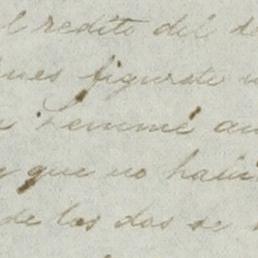 l redito del d
ues figurate u
Lemmé au
que no habi
de los dos se